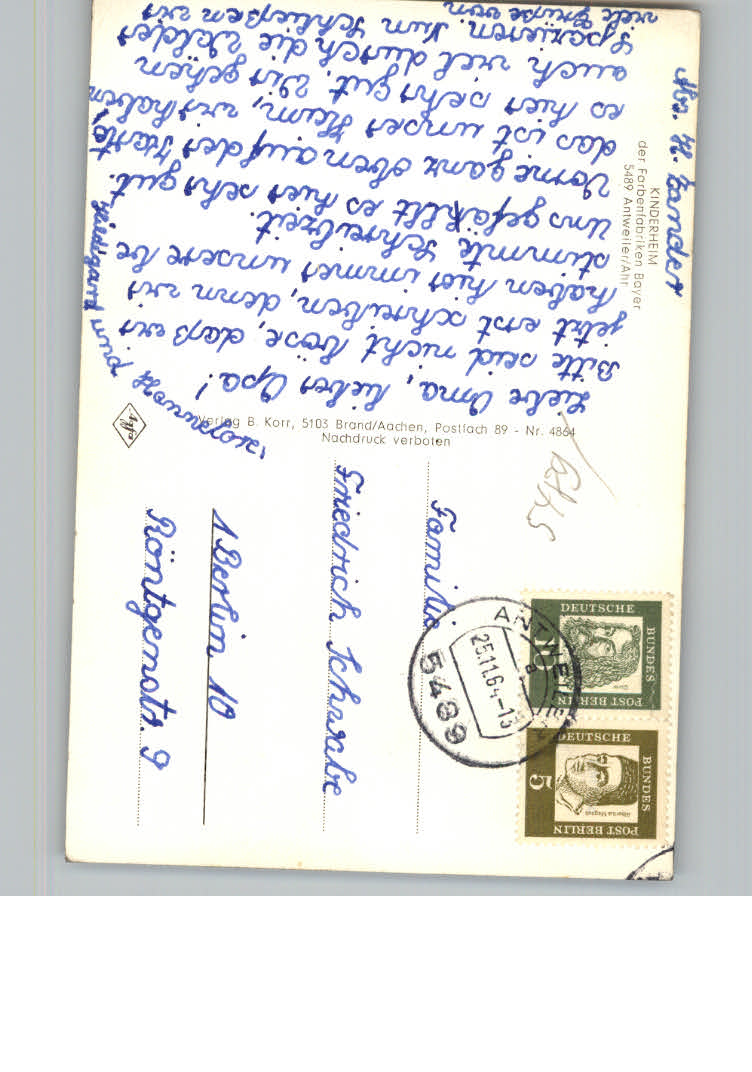 Abs. H. Zander
KINDERHEIM
der Farbenfabriken Bayer
5489 Antweiler/Ahr
Liebe Oma, lieber Opa!
Bitte seid nicht böse, daß wir
jetzt erst schreiben, denn wir
haben hier immer unsere be
stimmte Schreibzeit.
Uns gefällt es hier sehr gut.
Vorne ganz oben auf der Karte
das ist unser Heim, wir haben
es hier sehr gut. Wir gehen
auch viel durch die Wälder
spazieren. Zum Schließen wir
viele Grüße von
Hildegard und
Verlag B. Korr, 5103 Brand/Aachen, Postfach 89 - Nr. 4864
Nachdruck verboten
Agfa
ANTWEILER
a
25.11.64-13
5489
DEUTSCHE
BUNDES
POST BERLIN
10
Dürer
DEUTSCHE
BUNDES
POST BERLIN
5
Albertus Magnus
Familie
Friedrich Schwabe
1 Berlin 10
Röntgenstr. 9